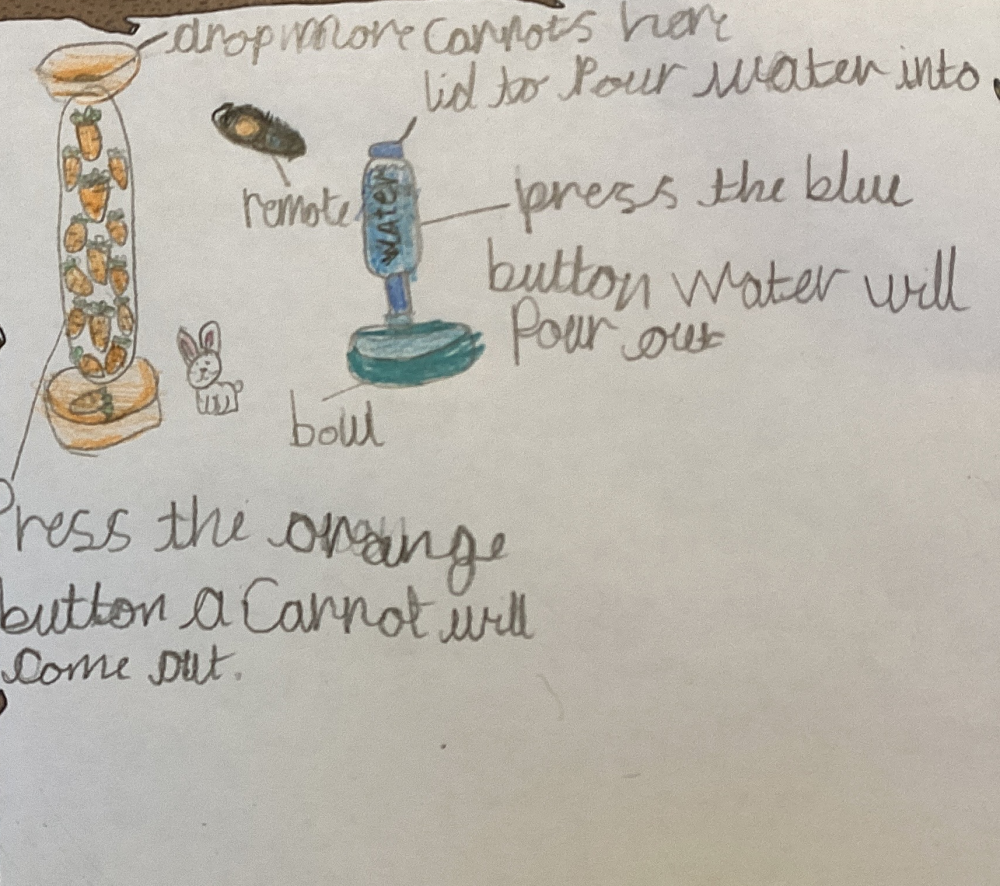 drop more carrots here
lid to Pour water into
remote
WATER
press the blue
button Water will
Pour out
bowl
Press the orange
button a Carrot will
come out.